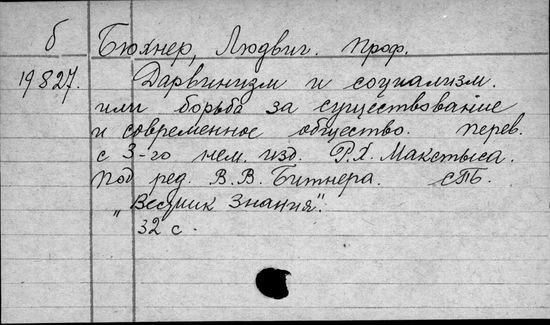 б Бюхнер, Людвиг. проф.
19827. Дарвинизм и социализм.
или борьба за существование
и современное общество. перев.
с 3-го нем. изд. Р.Х. Макстыса.
под ред. В.В. Битнера. СПБ.
„Вестник Знания".
32 с.